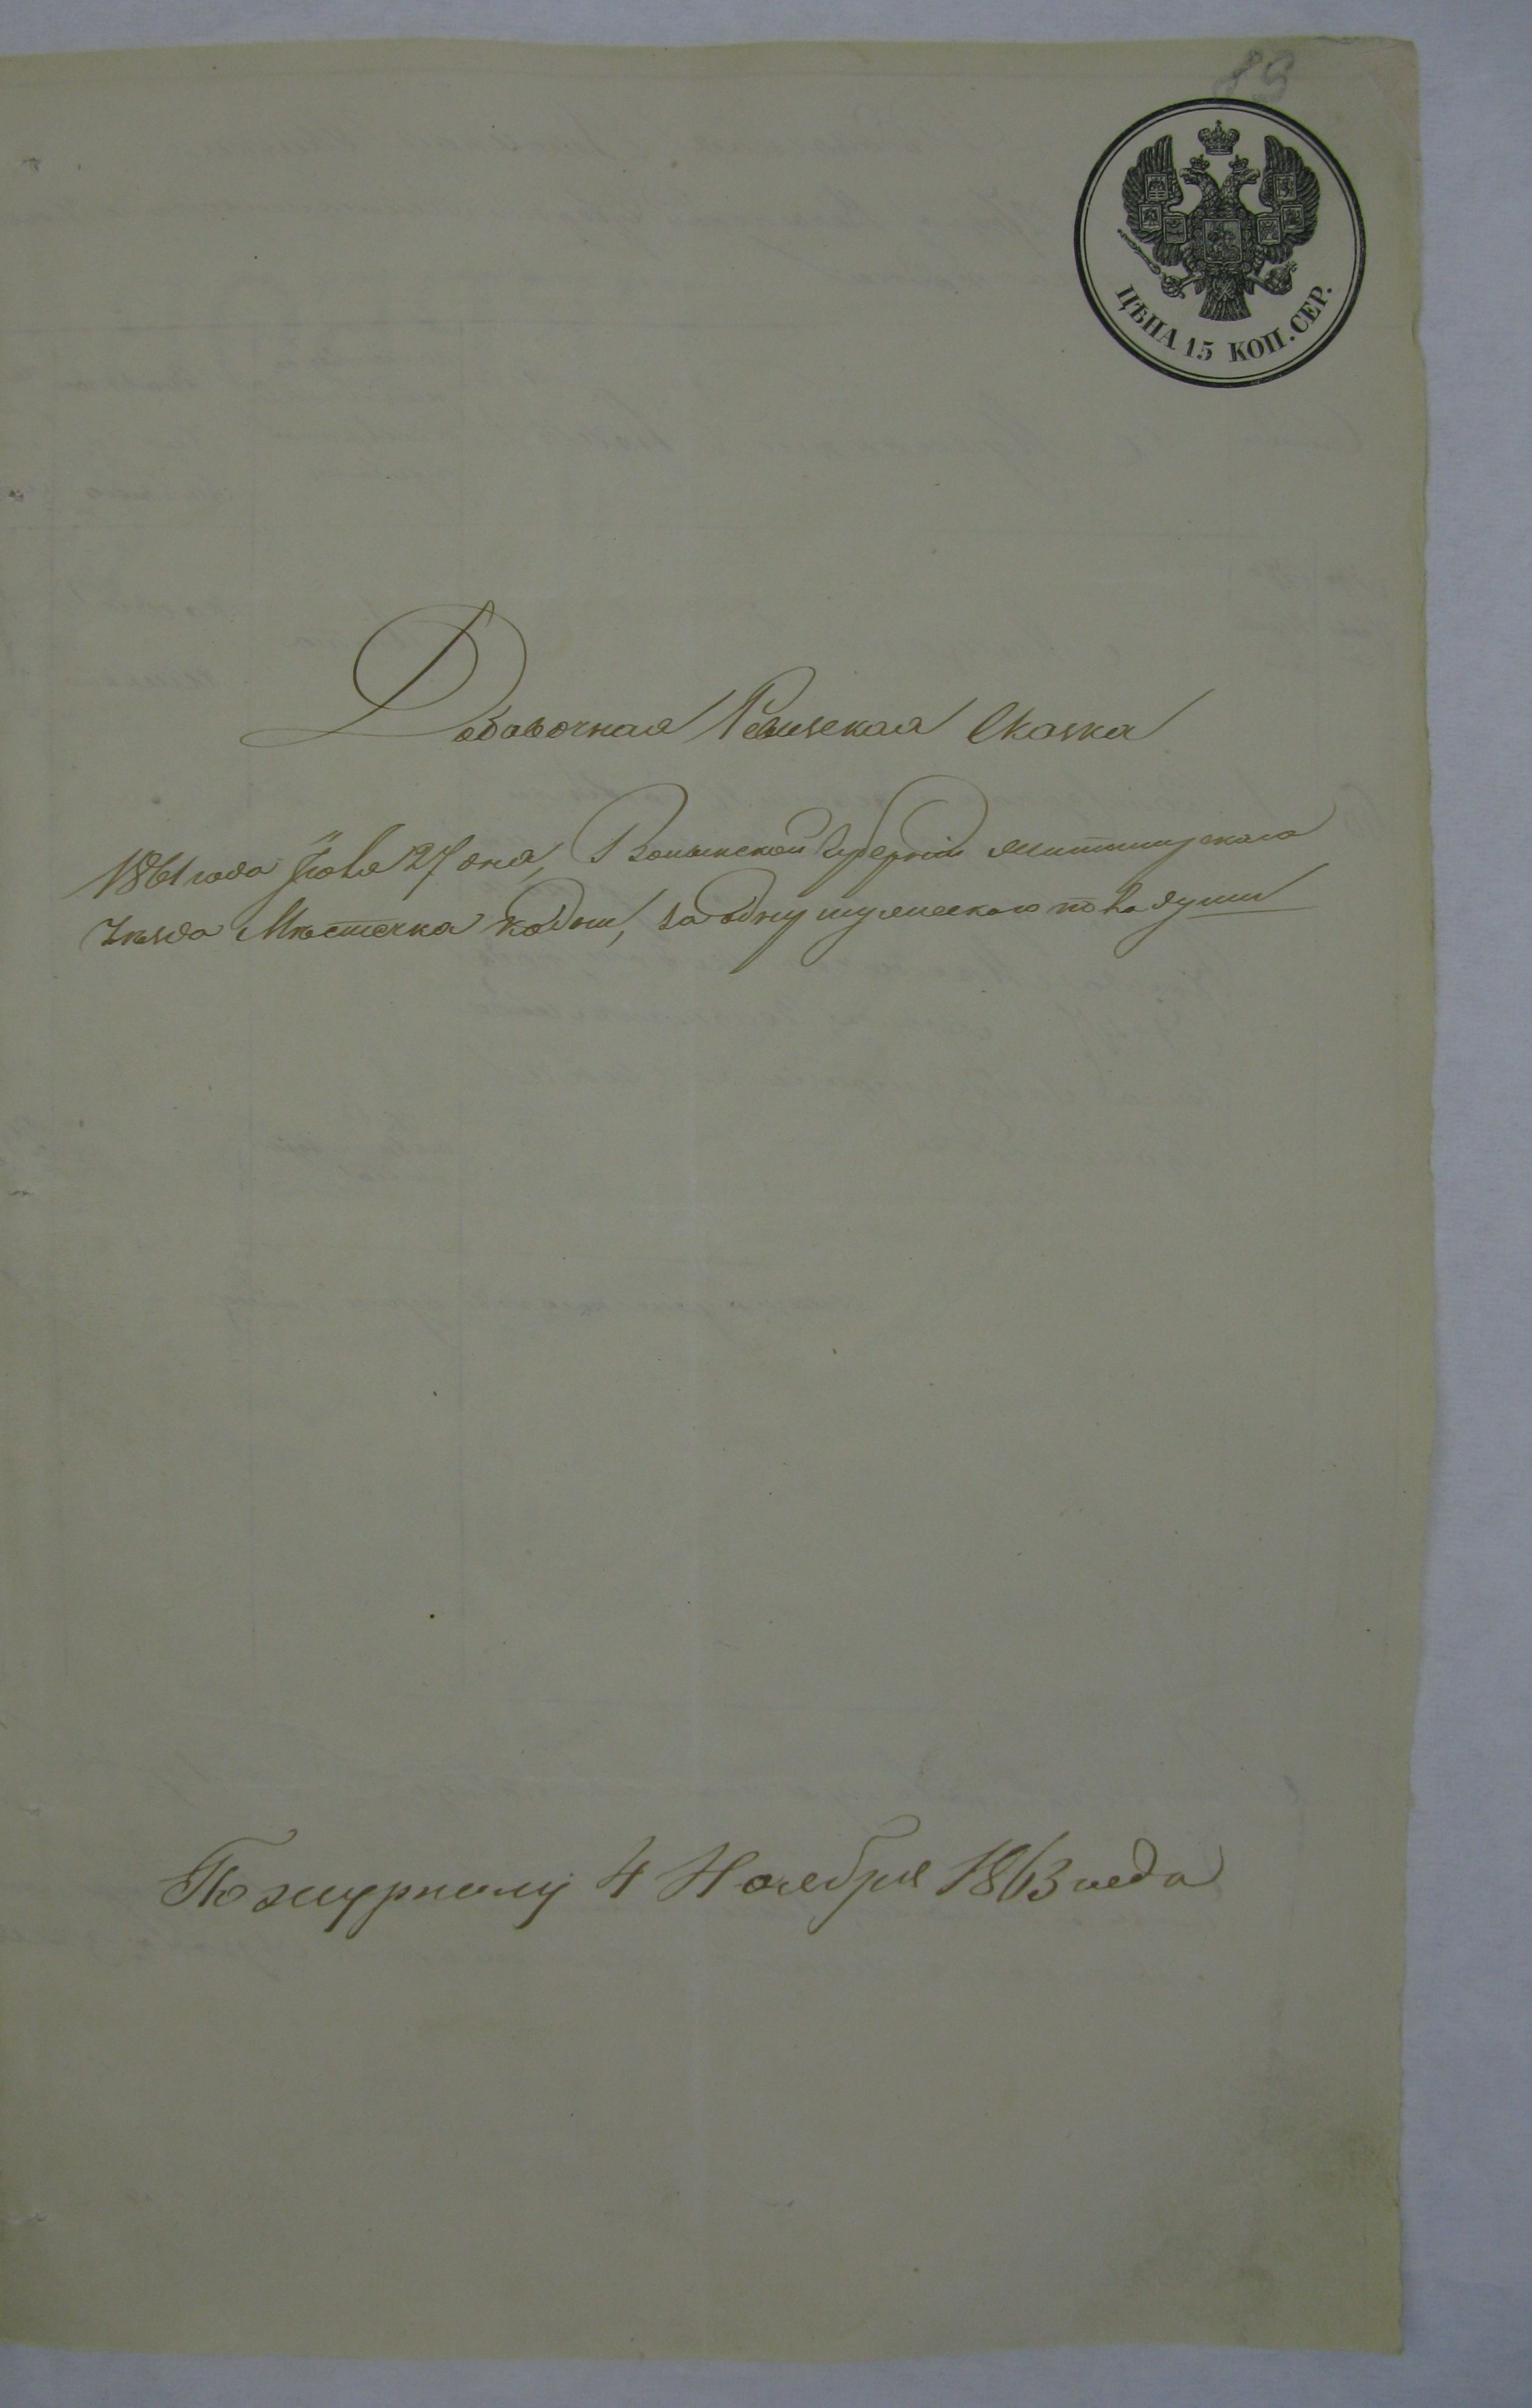 89
ЦѢНА 15 КОП. СЕР.
Добавочная Ревизская Сказка
1861 года Іюля 27 дня, Волынской Губерніи Житомирскаго
Уѣзда Мѣстечка Кодни, за одну мужескаго пола души
По журналу 4 Ноября 1863 года